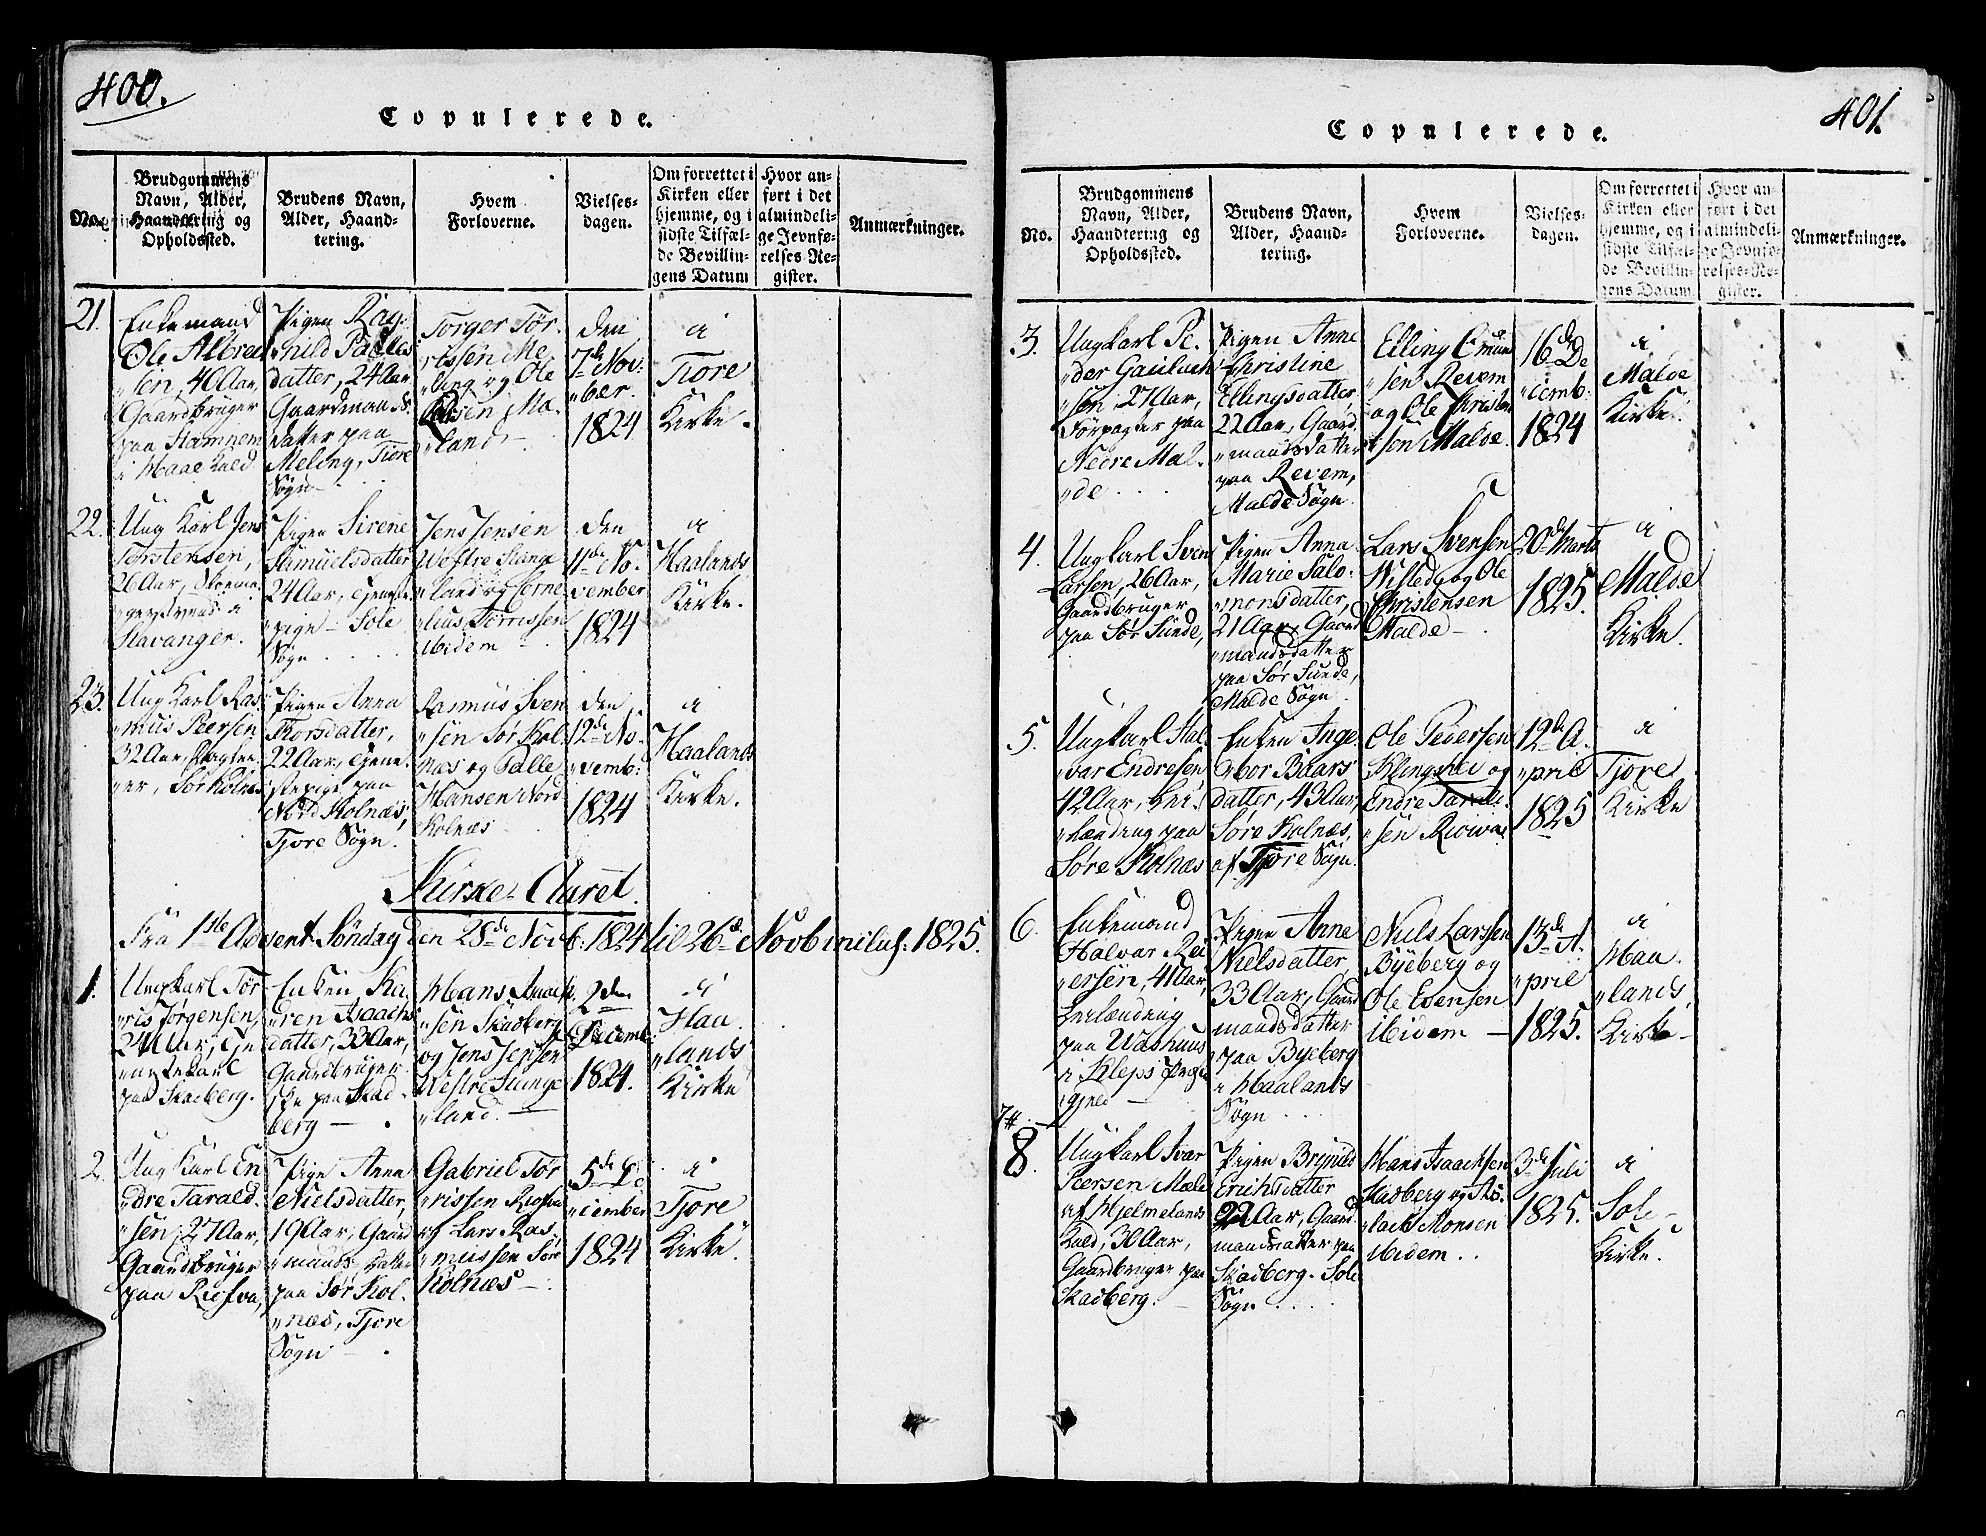 400.
Copulerede.
No.
Brudgommens
Navn, Alder,
Haandtering og
Opholdssted.
Brudens Navn,
Alder, Haand-
tering.
Hvem
Forloverne.
Vielses-
dagen.
Om forrettet i
Kirken eller
hjemme, og i
sidste Tilfæl-
de Bevillin-
gens Datum
Hvor an-
ført i det
almindeli-
ge Jevnfø-
relses Re-
gister.
Anmærkninger.
21.
Enkemand
Ole Albret
"sen, 40 Aar,
Gaardbruger
paa Hamnem
i Haae Kald
Pigen Rag-
"nild Palles
datter, 24 Aar
Gaardmands
datter paa
Meling, Tiore
Søgn
Torger Tør-
"rissen Me
"ling og Ole
Ma-
"land
den
7de Nov-
"ber.
1824
i
Tiore
Kirke.
22.
Ung Karl Jens
Torstensen,
26 Aar,
i
Stavanger.
Pigen Sirene
Samuelsdatter
24 Aar, tjeneste
"pige - Sole
Søgn
Jens Jensen
Westre Sunge
"land og Corne
"lius Tørrissen
ibidem
den
11de No-
vember
1824
i
Haalands
Kirke.
23.
Ung Karl Ras
"mus Peersen
32 Aar,
"er, Sør Kolnæs
Pigen Anna
Thorsdatter,
22 Aar, tjene-
stepige paa
Nord Kolnæs,
Tjore Søgn.
Rasmus Sven
"sen Sør Kol-
næs og Palle
Hansen Nord
Kolnæs
den
12de No-
"vemb:
1824
i
Haalands
Kirke.
Kirke-Aaret
Fra 1ste Advent Søndag den 28de Novb: 1824 til 26de Novb inclus: 1825.
1.
Ungkarl Tør
"ris Jørgensen,
24 Aar, tje
"nestekarl
paa Skadberg.
Enken Ka
"ren Isaachs
datter, 33 Aar,
Gaardbruger-
ske paa Skad-
berg
Hans Isaach
"sen Skadberg
og Jens Jensen
Westre Sunge
"land.
2den
Decemb:
1824.
i
Haa-
"lands
Kirke
2.
Ung Karl En
"dre Tarald-
"sen, 27 Aar,
Gaardbruger
paa Risva,
Pigen Anna
Nielsdatter,
19 Aar, Gaard
"mands datter
paa Sør Kol-
"næs, Tjore
Søgn
Gabriel Tør
"rissen Risva
og Lars Ras
"mussen Søre
Kolnæs
5de De
"cember
1824
i
Tjore
Kirke
401.
Copulerede.
No.
Brudgommens
Navn, Alder,
Haandtering og
Opholdssted.
Brudens Navn,
Alder, Haand-
tering.
Hvem
Forloverne.
Vielses-
dagen.
Om forrettet i
Kirken eller
hjemme, og i
sidste Tilfæl-
de Bevillin-
gens Datum
Hvor an-
ført i det
almindeli-
ge Jevnfø-
relses-Re-
gister.
Anmærkninger.
3.
Ungkarl Pe-
"der
"sen, 27 Aar,
Forpagter paa
Nedre Mal-
"de
Pigen Anne
Christine
Ellingsdatter
22 Aar, Gaard
"mandsdatter
paa Revem,
Malde Søgn
Elling Omun
"sen Revem
og Ole Christen
"sen Malde.
16de De
"cemb:
1824
i
Malde
Kirke.
4.
Ungkarl Sven
Larsen, 26 Aar,
Gaardbruger
paa Sør Sunde,
Pigen Anna
Marie Salo-
"monsdatter,
21 Aar, Gaard
"mandsdatter
paa Sør Sunde,
Malde Søgn.
Lars Svensen
og Ole
Christensen
Malde
20de Marts
1825.
i
Malde
Kirke.
5.
Ungkarl Hal-
"var Endresen
42 Aar, Lei-
"lænding paa
Søre Kolnæs
Enken Inge-
"bor Baars
datter, 43 Aar,
Søre Kolnæs,
af Tjore Søgn.
Ole Pedersen
og
Endre Tarald-
"sen Risva
12de A-
"pril
1825
i
Tjore
Kirke
6.
Enkemand
Halvar Rei
"ersen, 41 Aar,
Leilænding
paa Washuus
i Kleps Præste
"gjeld
Pigen Anne
Nielsdatter
33 Aar, Gaard
mandsdatter
paa Byeberg
i Haalands
Søgn
Niels Larssen
Byeberg og
Ole Evensen
ibidem
13de A-
"pril
1825.
i
Haa-
"lands
Kirke
7#
8.
Ungkarl Ivar
Peersen Mæle
af Hjelmelands
Kald, 30 Aar,
Gaardbruger paa
Skadberg.
Pigen Brynild
Erichsdatter
22 Aar, Gaard-
mandsdatter paa
Skadberg. Sole
Søgn
Hans Isaachsen
Skadberg og As-
"lack Monsen
ibidem.
3de Juli
1825.
i
Sole
Kirke.